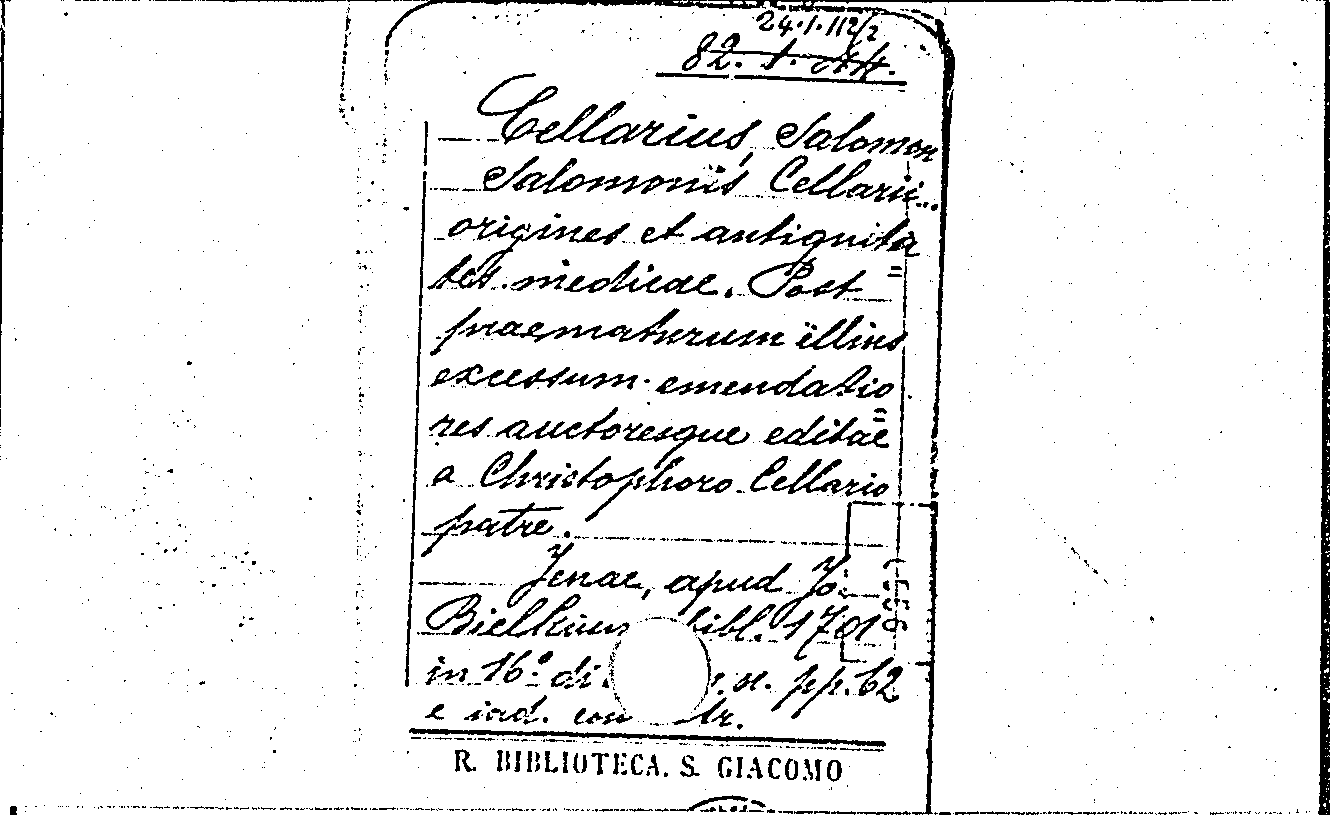 24.1.112/2
82. 1.
Cellarius, Salomon
Salomonis Cellarii...
origines et antiquita
tes medicae. Post
praematurum illius
excessum emendatio
res auctoresque editae
a Christophoro Cellario
patre.
Jenae, apud Jo:
Bielkium bibl. 1701
in 16° di n. pp. 62
e ind. con tr.
R. BIBLIOTECA. S. GIACOMO